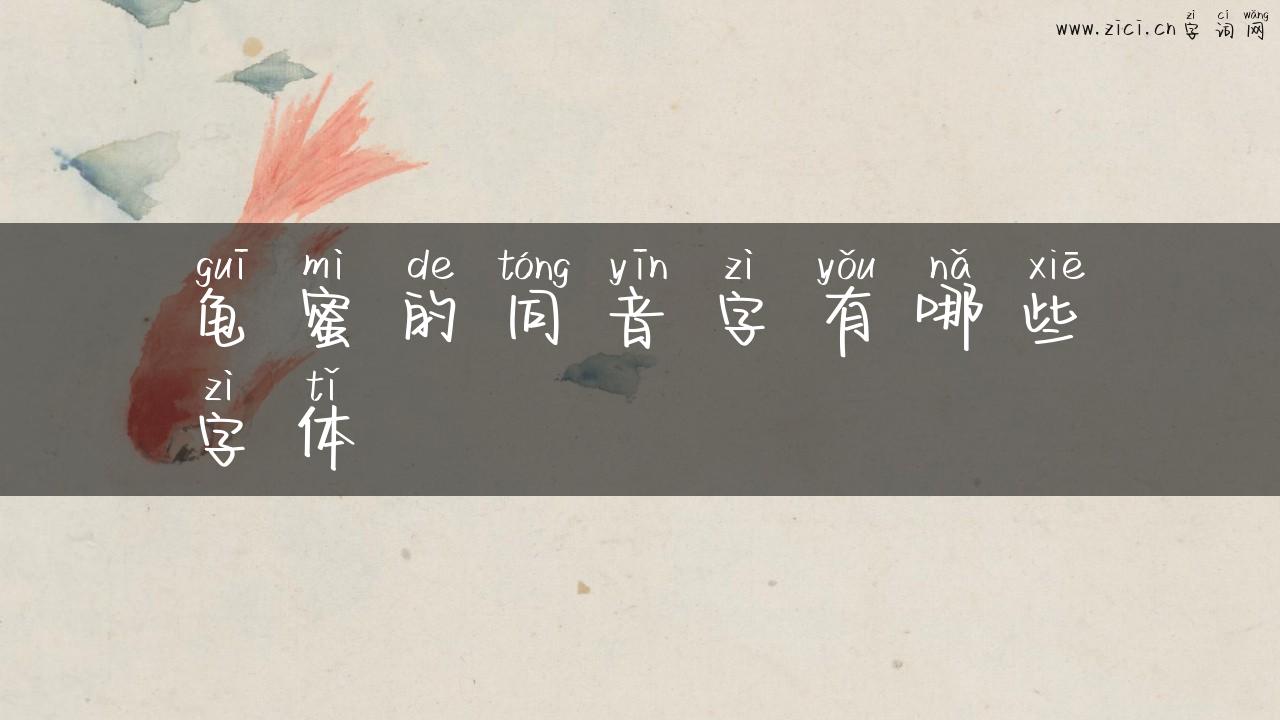 zì cí wǎng
www.zici.cn 字词网
guī mì de tóng yīn zì yǒu nǎ xiē
龟蜜的同音字有哪些
zì tǐ
字体